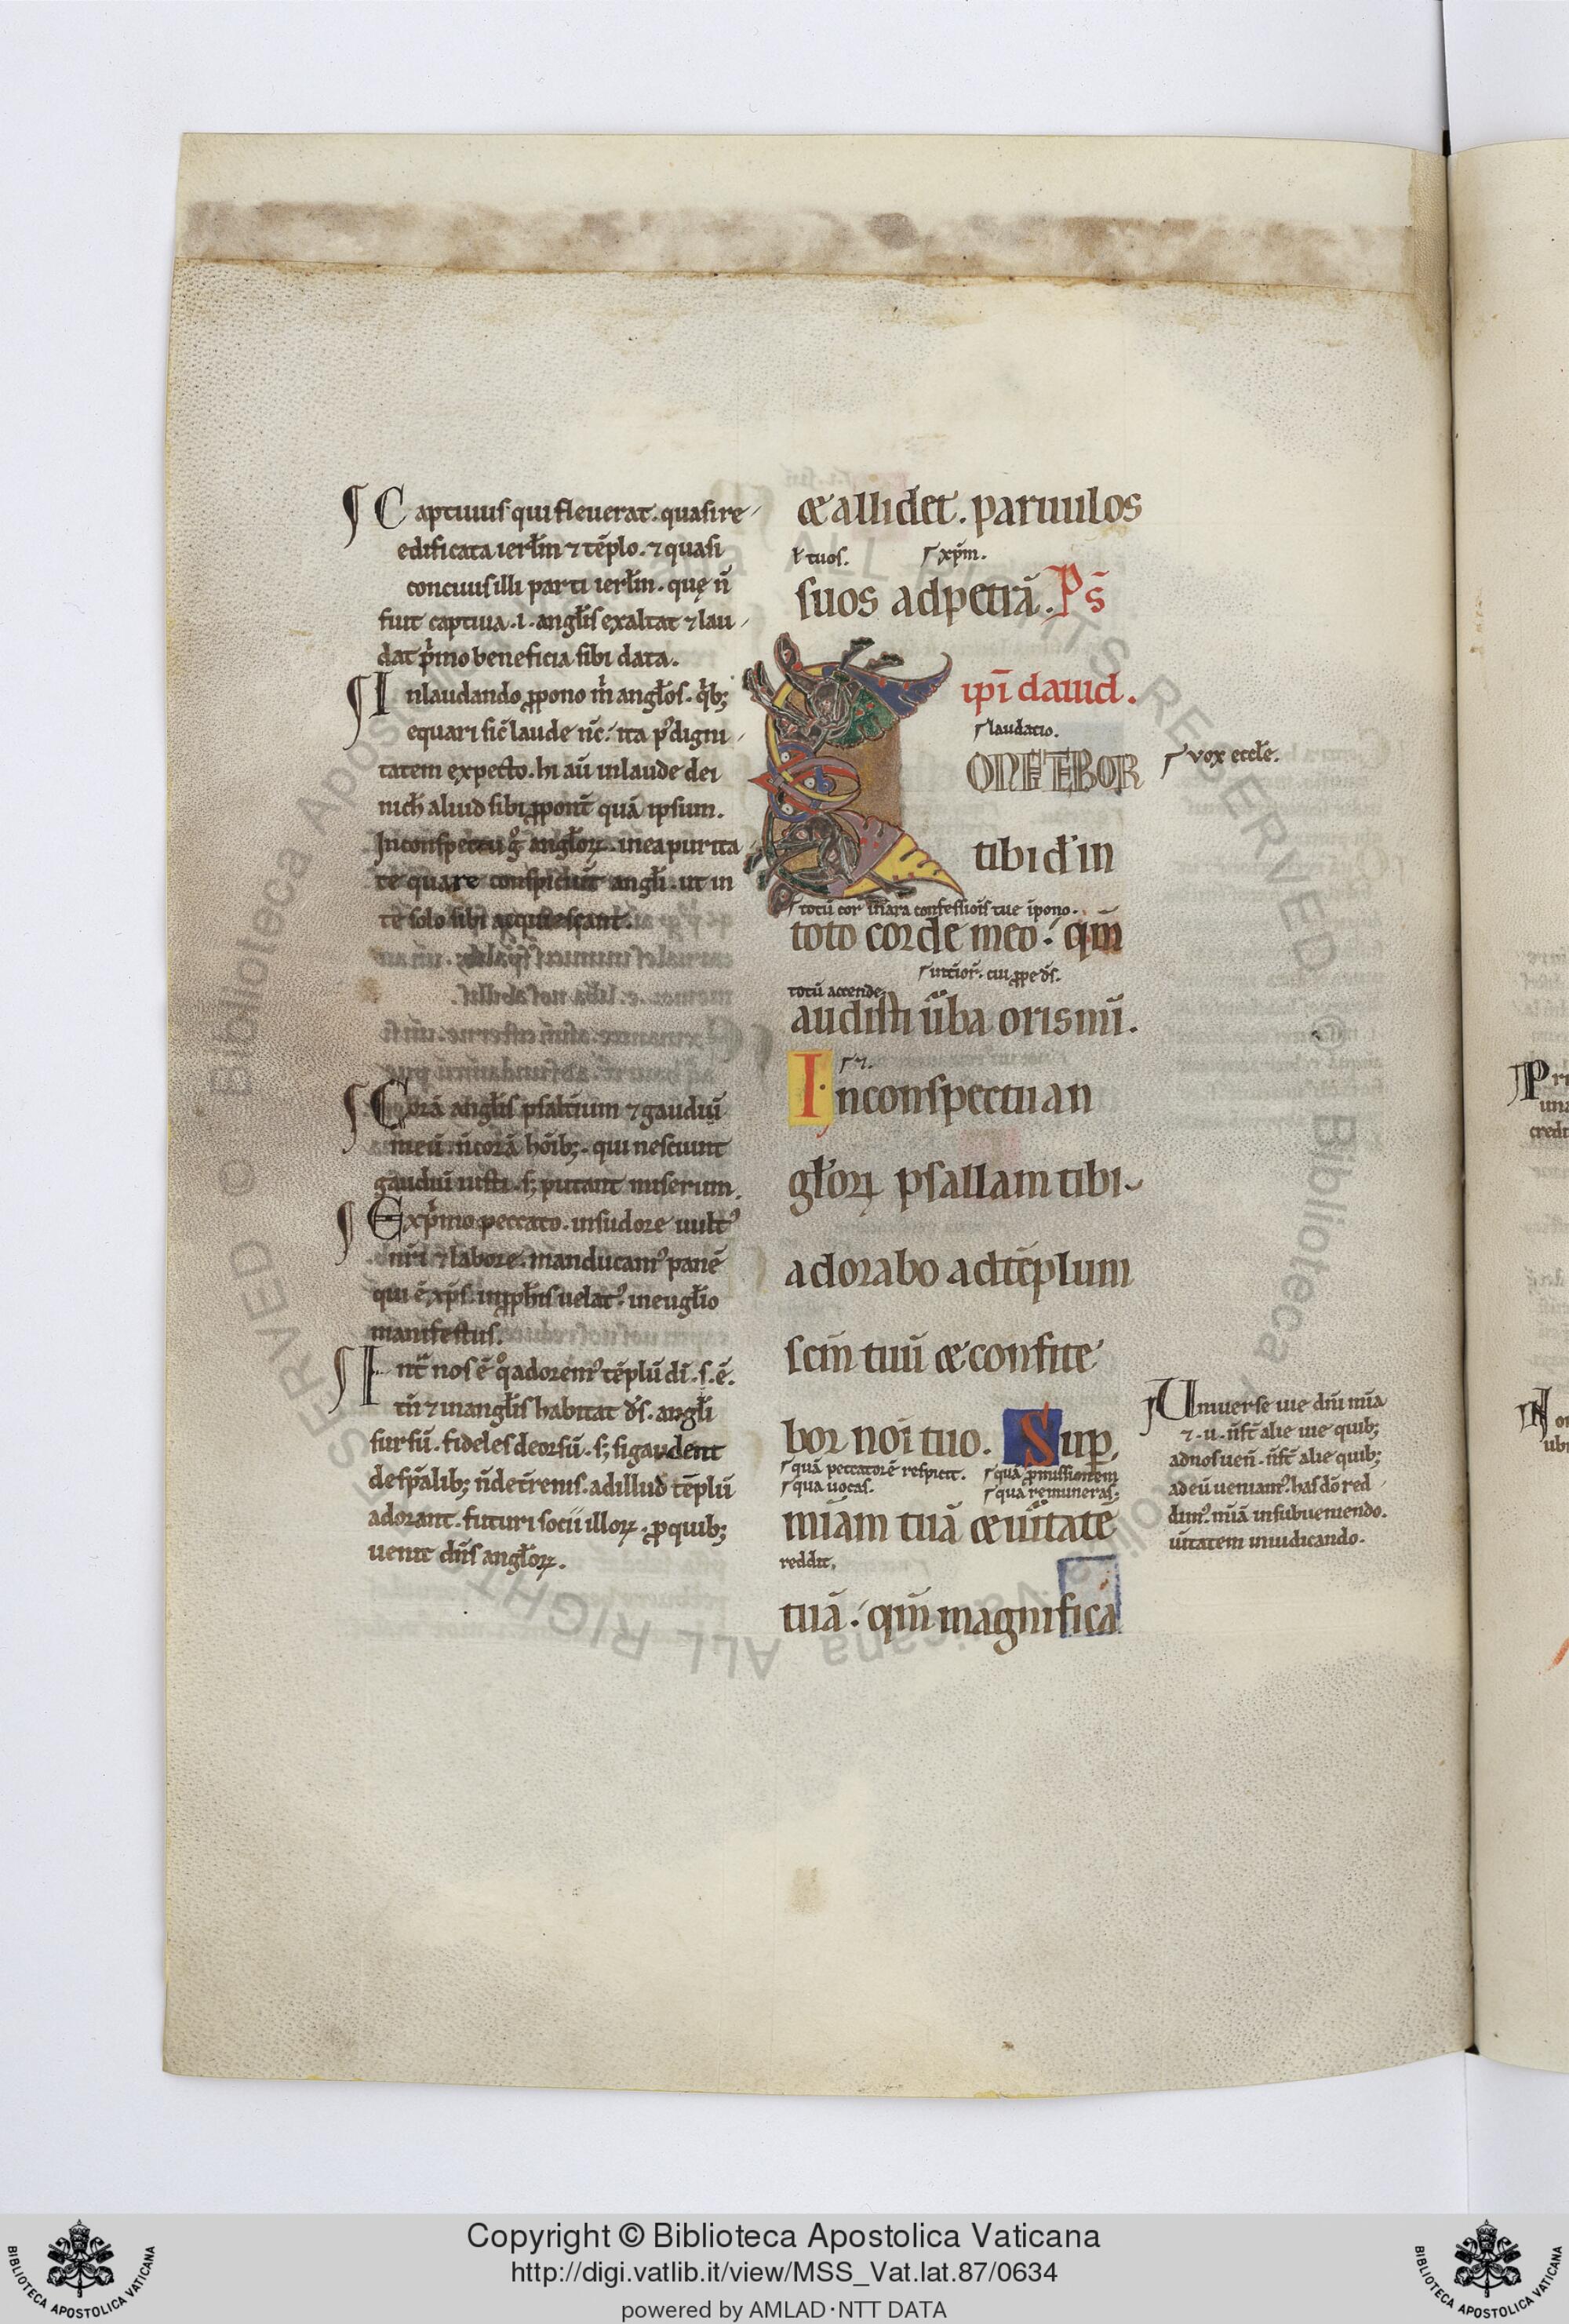 Captiuus qui fleuerat. quasi re
edificata ierłm ⁊ tēplo. ⁊ quasi
conciuis illi parti ierłm. quę n̄
fuit captiua .i. angłis exaltat ⁊ lau
dat pͥmo beneficia sibi data.
In laudando ꝓpono m̄ angłos. qͥbꝫ
equari sic̄ laude nc̄. ita p᷒ digni
tatem expecto. hi aū in laude dei
nich̄ aliud sibi ꝓpont̄ quā ipsum.
In conspectu gͦ angłoꝝ. in ea purita
te qua te conspiciūt angłi. ut in
te solo sibi acquiescant.
Corā angłis psałtium ⁊ gaudiū
meū. n̄ corā hōibꝫ. qui nesciunt
gaudiū iusti. sꝫ putant miserum.
Ex pͥmo peccato. in sudore uult᷒
nr̄i ⁊ labore. manducam᷒ panē
qui ē xp̄s. in ꝓph̄is uelat᷒. in eugłio
manifestus.
Int᷑ nos ē qͦ adorem᷒ tēplū dī. s. ē.
tn̄ ⁊ in angłis habitat ds̄. angłi
sursū. fideles deorsū. sꝫ si gaudent
de sp̄alibꝫ n̄ de tr̄enis. ad illud tēplū
adorant. futuri socii illoꝝ. ꝓ quibꝫ
uenit dn̄s angłoꝝ.
& allidet. paruulos
ł tuos. xp̄m.
suos ad petrā. Ps̄
ipī dauid.
laudatio.
CONFITEBOR
vox eccłe.
tibi d̄ in
totū cor in ara confessiōis tue īpono.
toto corde meo. qm̄
int̄ior̄. cui ꝓpe ds̄.
totū accende
audisti ūba oris mī.
⁊.
In conspectu an
głoꝝ psallam tibi
adorabo ad tēplum
scm̄ tuū & confite
bor noī tuo. Suꝑ
quā peccatorē respicit. qua ꝓmissionem
qua uocas. qua remuneras.
mīam tuā & ūitatē
reddit.
tuā. qm̄ magnifica
Uniuerse uie dn̄i mīa
⁊. u. n̄ st̄ alie uie quibꝫ
ad nos uen̄. n̄ st̄ alie quibꝫ
ad eū ueniam᷒. has dō red
dim᷒. mīā in subueniendo.
ūitatem in iudicando.
Copyright © Biblioteca Apostolica Vaticana
http://digi.vatlib.it/view/MSS_Vat.lat.87/0634
powered by AMLAD·NTT DATA
BIBLIOTECA APOSTOLICA VATICANA
BIBLIOTECA APOSTOLICA VATICANA